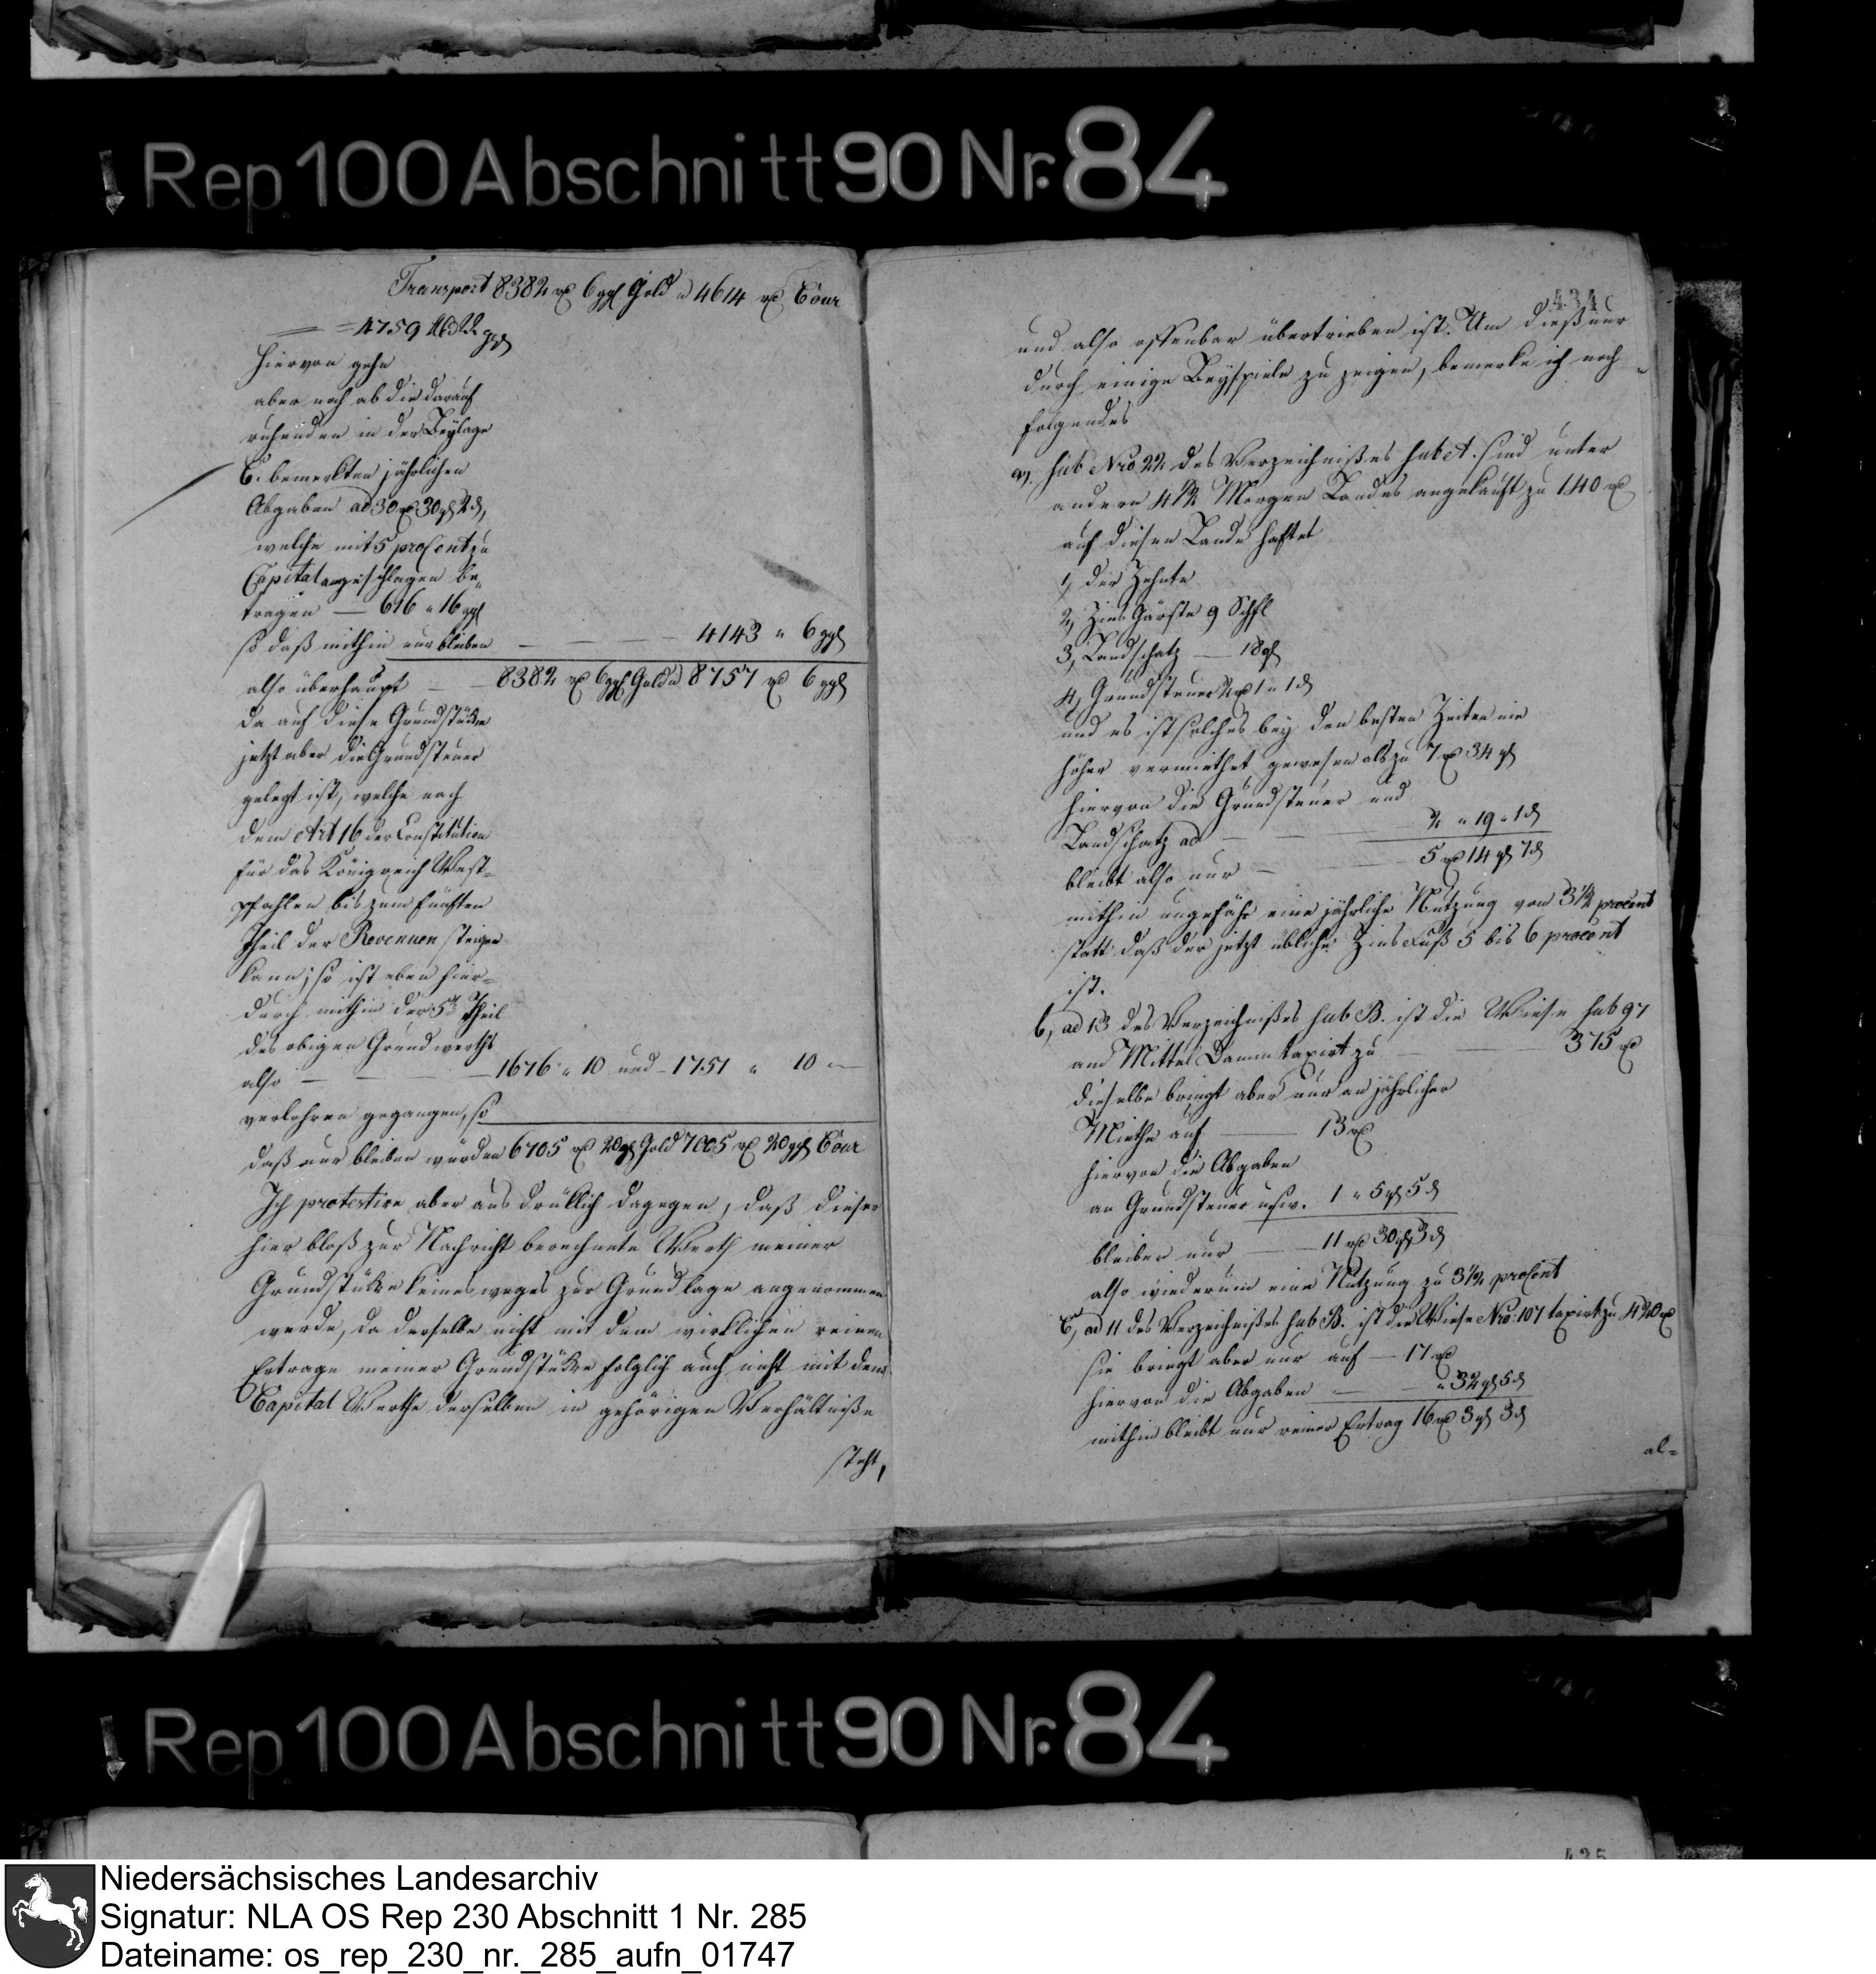 Rep 100 Abschnitt 90 Nr. 84
Transport 8382 rt 6 ggl Gold u 4614 rt Cour
4759
hiervon gehn
aber noch ab die darauf
ruhenden in der Beylage
C. bemerkten jährlichen
Abgaben ad 30 rt 30 gl 2 d,
welche mit 5 proCent zu
Capital angeschlagen be-
tragen — 616 " 16 ggl
so daß mithin nur bleiben — 4143 " 6 ggl
also überhaupt — 8382 rt 6 ggl Gold u 8757 rt 6 ggl
da auf diese Grundstücke
jetzt aber die Grundsteuer
gelegt ist, welche nach
dem Art 16 der Constitution
für das Königreich West-
phahlen bis zum fünften
Theil der Revenuen steigen
kann; so ist eben hier-
durch mithin der 5te Theil
des obigen Grundwerths
also — 1676 " 10 und 1751 " 10 —
verlohren gegangen, so
daß nur bleiben würden 6705 rt 20 gl Gold 7005 rt 20 ggl Cour
Ich protestire aber ausdrüklich dagegen, daß dieser
hier bloß zur Nachricht berechnete Werth meiner
Grundstücke keinesweges zur Grundlage angenommen
werde, da derselbe nicht mit dem wirklichen reinen
Ertrage meiner Grundstücke folglich auch nicht mit dem
Capital Werthe derselben in gehörigen Verhältniße
steht,
434
und also offenbar übertrieben ist. Um dieß nur
durch einige Beyspiele zu zeigen, bemerke ich noch
folgendes
a). sub Nro 22 des Verzeichnißes sub A. sind unter
andern 4 1/2 Morgen Landes angekauft zu 140 rt
auf diesen Lande haftet
1, der Zehnte
2, Zins Gärste 9 Schfl
3, Landschatz — 18 gl
4, Grundsteuer 2 rt 1 " 1 d
und es ist solches bey den besten Zeiten nie
höher vermiethet gewesen als zu 7 rt 34 gl
hiervon die Grundsteuer und
Landschatz ad — 2 " 19 " 1 d
bleibt also nur — 5 rt 14 gl 7 d
mithin ungefähr eine jährliche Nutzung von 3 1/2 procent
statt daß der jetzt übliche Zins Fuß 5 bis 6 procent
ist.
b, ad 13 des Verzeichnißes sub B. ist die Wiese sub 97
am Mittel Damm taxirt zu — 375 rt
dieselbe bringt aber nur an jährlicher
Miethe auf — 13 rt
hiervon die Abgaben
an Grundsteuer usw. 1 " 5 gl 5 d
bleiben nur — 11 rt 30 gl 3 d
also wiederum eine Nutzung zu 3 1/2 proCent
C, ad 11 des Verzeichnißes sub B. ist die Wiese Nro 107 taxirt zu 420 rt
sie bringt aber nur auf — 17 rt
hiervon die Abgaben — " 32 gl 5 d
mithin bleibt nur reiner Ertrag 16 rt 3 gl 3 d
al-
Rep 100 Abschnitt 90 Nr. 84
Niedersächsisches Landesarchiv
Signatur: NLA OS Rep 230 Abschnitt 1 Nr. 285
Dateiname: os_rep_230_nr._285_aufn_01747